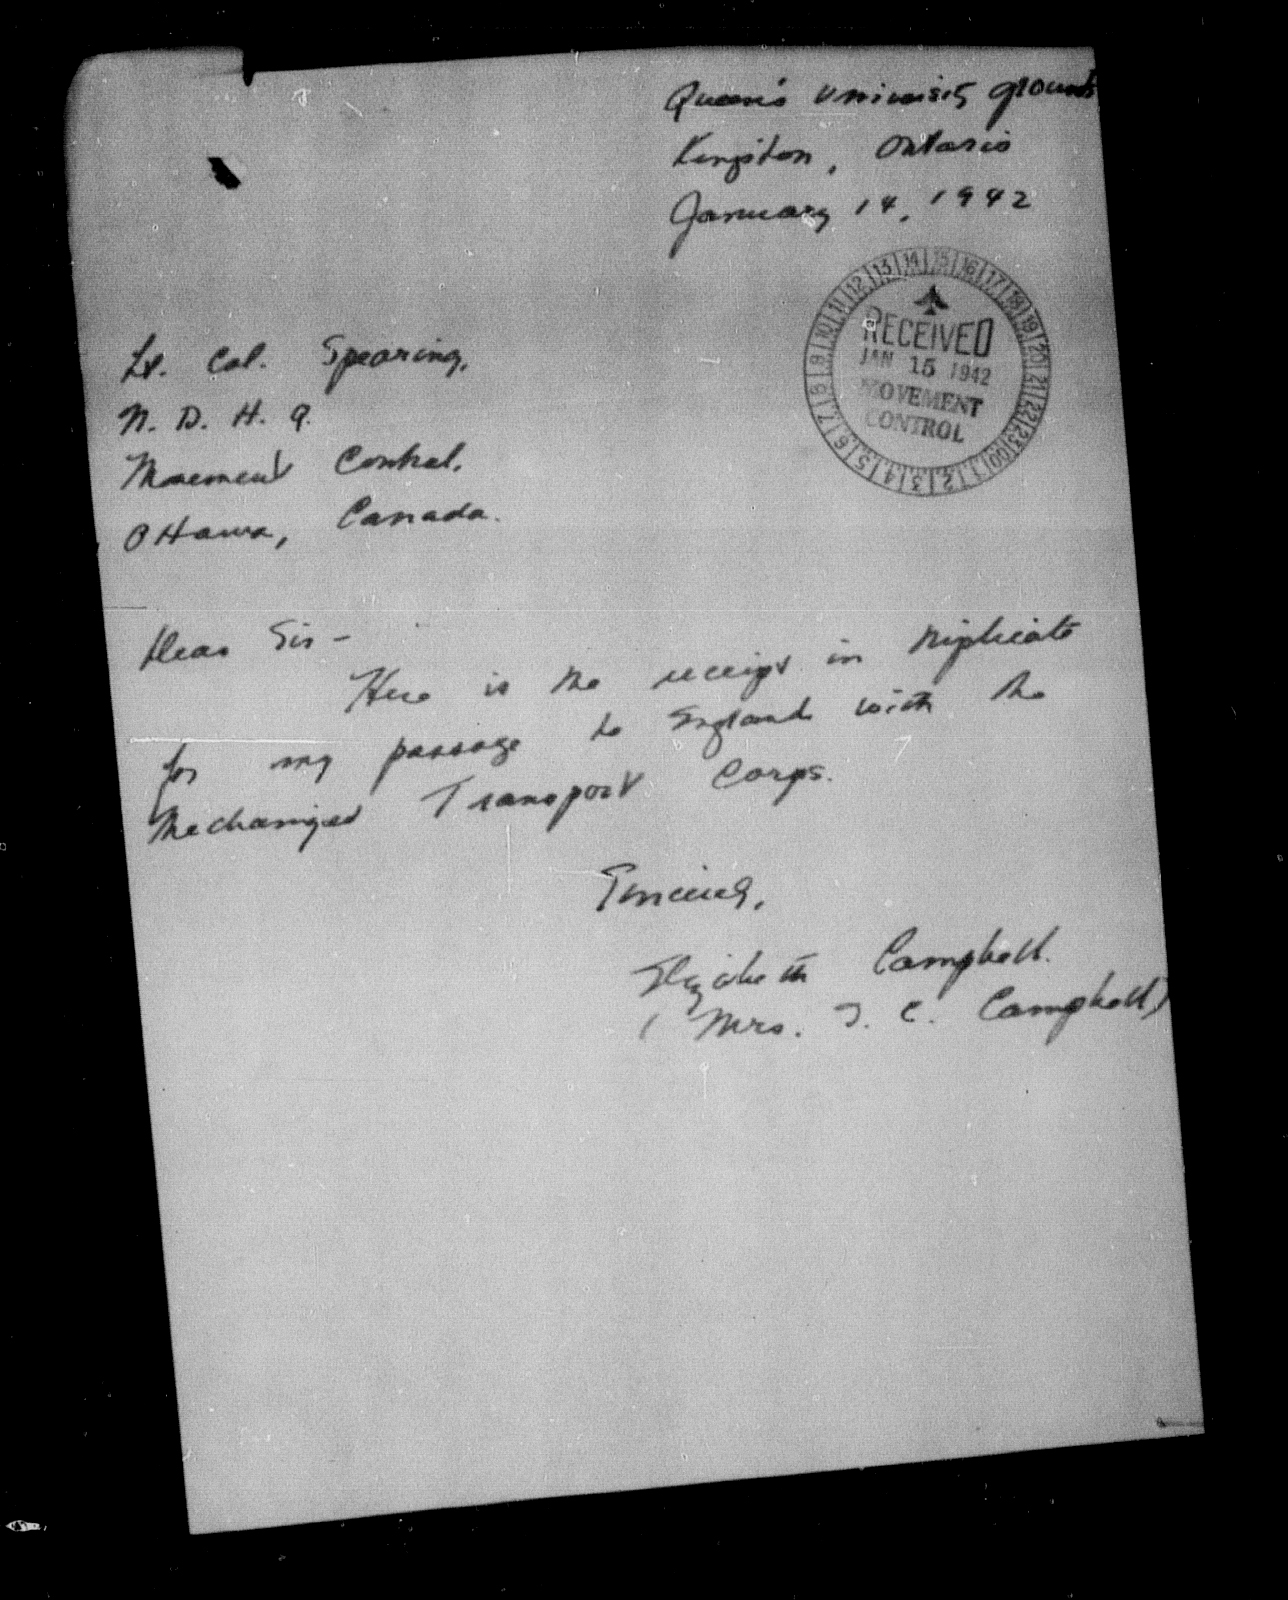 Queen's University grounds
Kingston, Ontario
January 14, 1942
13 14 15 16 17 18 19 20 21 22 23 00 1 2 3 4 5 6 7 8 9 10 11 12
RECEIVED
JAN 15 1942
MOVEMENT
CONTROL
Lt. Col. Spearing,
N. D. H. Q.
Movement Control,
Ottawa, Canada.
Dear Sir -
Here is the receipt in triplicate
for my passage to England with the
Mechanized Transport Corps.
Sincerely,
Elizabeth Campbell.
(Mrs. T. C. Campbell)